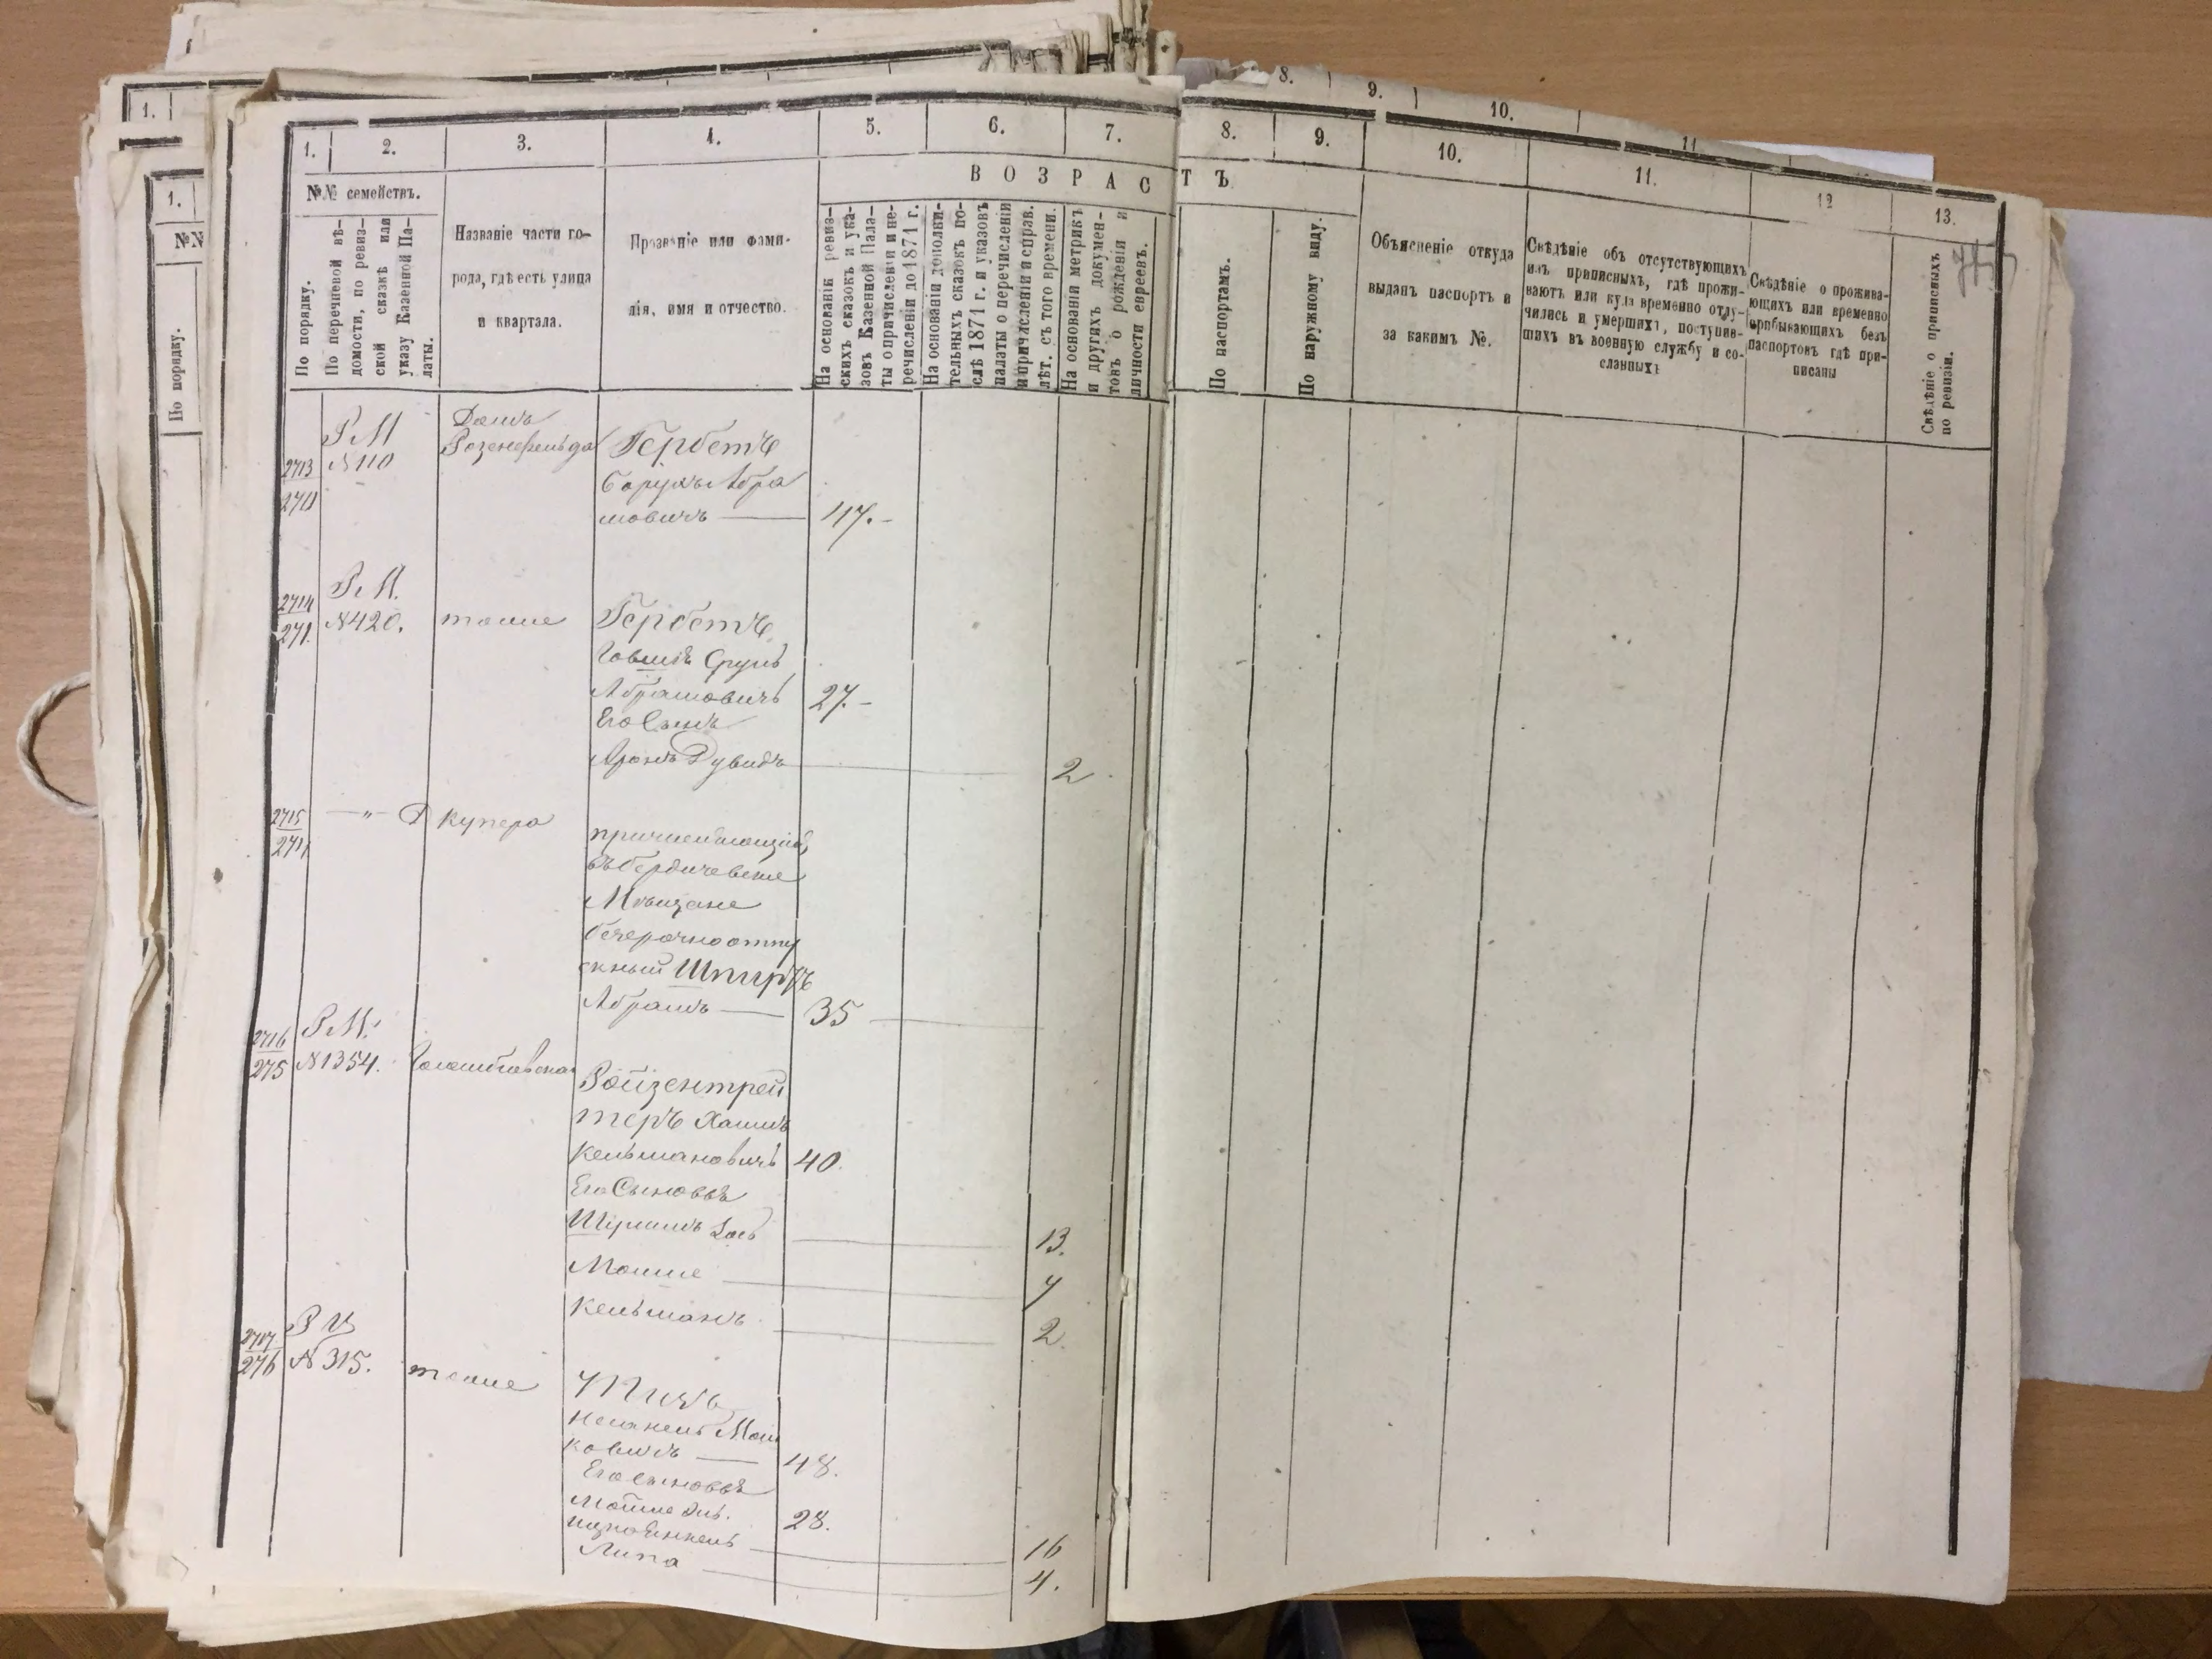 8.
9.
10.
11
1.
1.
№№
По порядку.
1.
2.
3.
4.
5.
6.
7.
8.
9.
10.
11.
12
13.
№№ семействъ.
ВОЗРАСТЪ
По порядку.
По перечневой вѣ-
домости, по ревиз-
ской сказкѣ или
указу Казенной Па-
латы.
Названіе части го-
рода, гдѣ есть улица
и квартала.
Прозваніе или фами-
лія, имя и отчество.
На основаніи ревиз-
скихъ сказокъ и ука-
зовъ Казенной Пала-
ты о причислени и не-
речислени до 1871 г.
На основаніи дополни-
тельныхъ сказокъ по-
слѣ 1871 г. и указовъ
палаты о перечислени
и причислени и справ.
лѣт. съ того времени.
На основаніи метрикъ
и другихъ докумен-
товъ о рожденіи и
личности евреевъ.
По паспортамъ.
По наружному виду.
Объясненіе откуда
выданъ паспортъ и
за какимъ №.
Свѣдѣніе объ отсутствующихъ
изъ приписныхъ, гдѣ прожи-
ваютъ или куда временно отлу-
чились и умершихъ, поступив-
шихъ въ военную службу и со-
сланныхъ
Свѣдѣніе о прожива-
ющихъ или временно
прибывающихъ безъ
паспортовъ гдѣ при-
писаны
Свѣдѣніе о приписныхъ
по ревизіи.
2713
Р М
№ 110
Домъ
Розенфельда
Гербетъ
Борухъ Абра
мовичъ
47.
2714
271.
Р М.
№ 420.
тоже
Гербетъ
Говшія Сруль
Абрамовичъ
27.
Его Сынъ
Аронъ Дувидъ
2
2715
Д Купера
въ Бердичевские
Мѣщане
безсрочноотпу
скный Шпиръ
Абрамъ
35
2716
275
Р М.
№ 1354.
Ройзентрей
теръ Хаимъ
Кельмановичъ
40.
Его Сыновья
Шулимъ Лейб
13.
Мошие
7
Кельманъ
2
2717
276
Р М
№ 315.
тоже
Мош
ковичъ
48.
Его сыновья
28.
16
Липа
4.